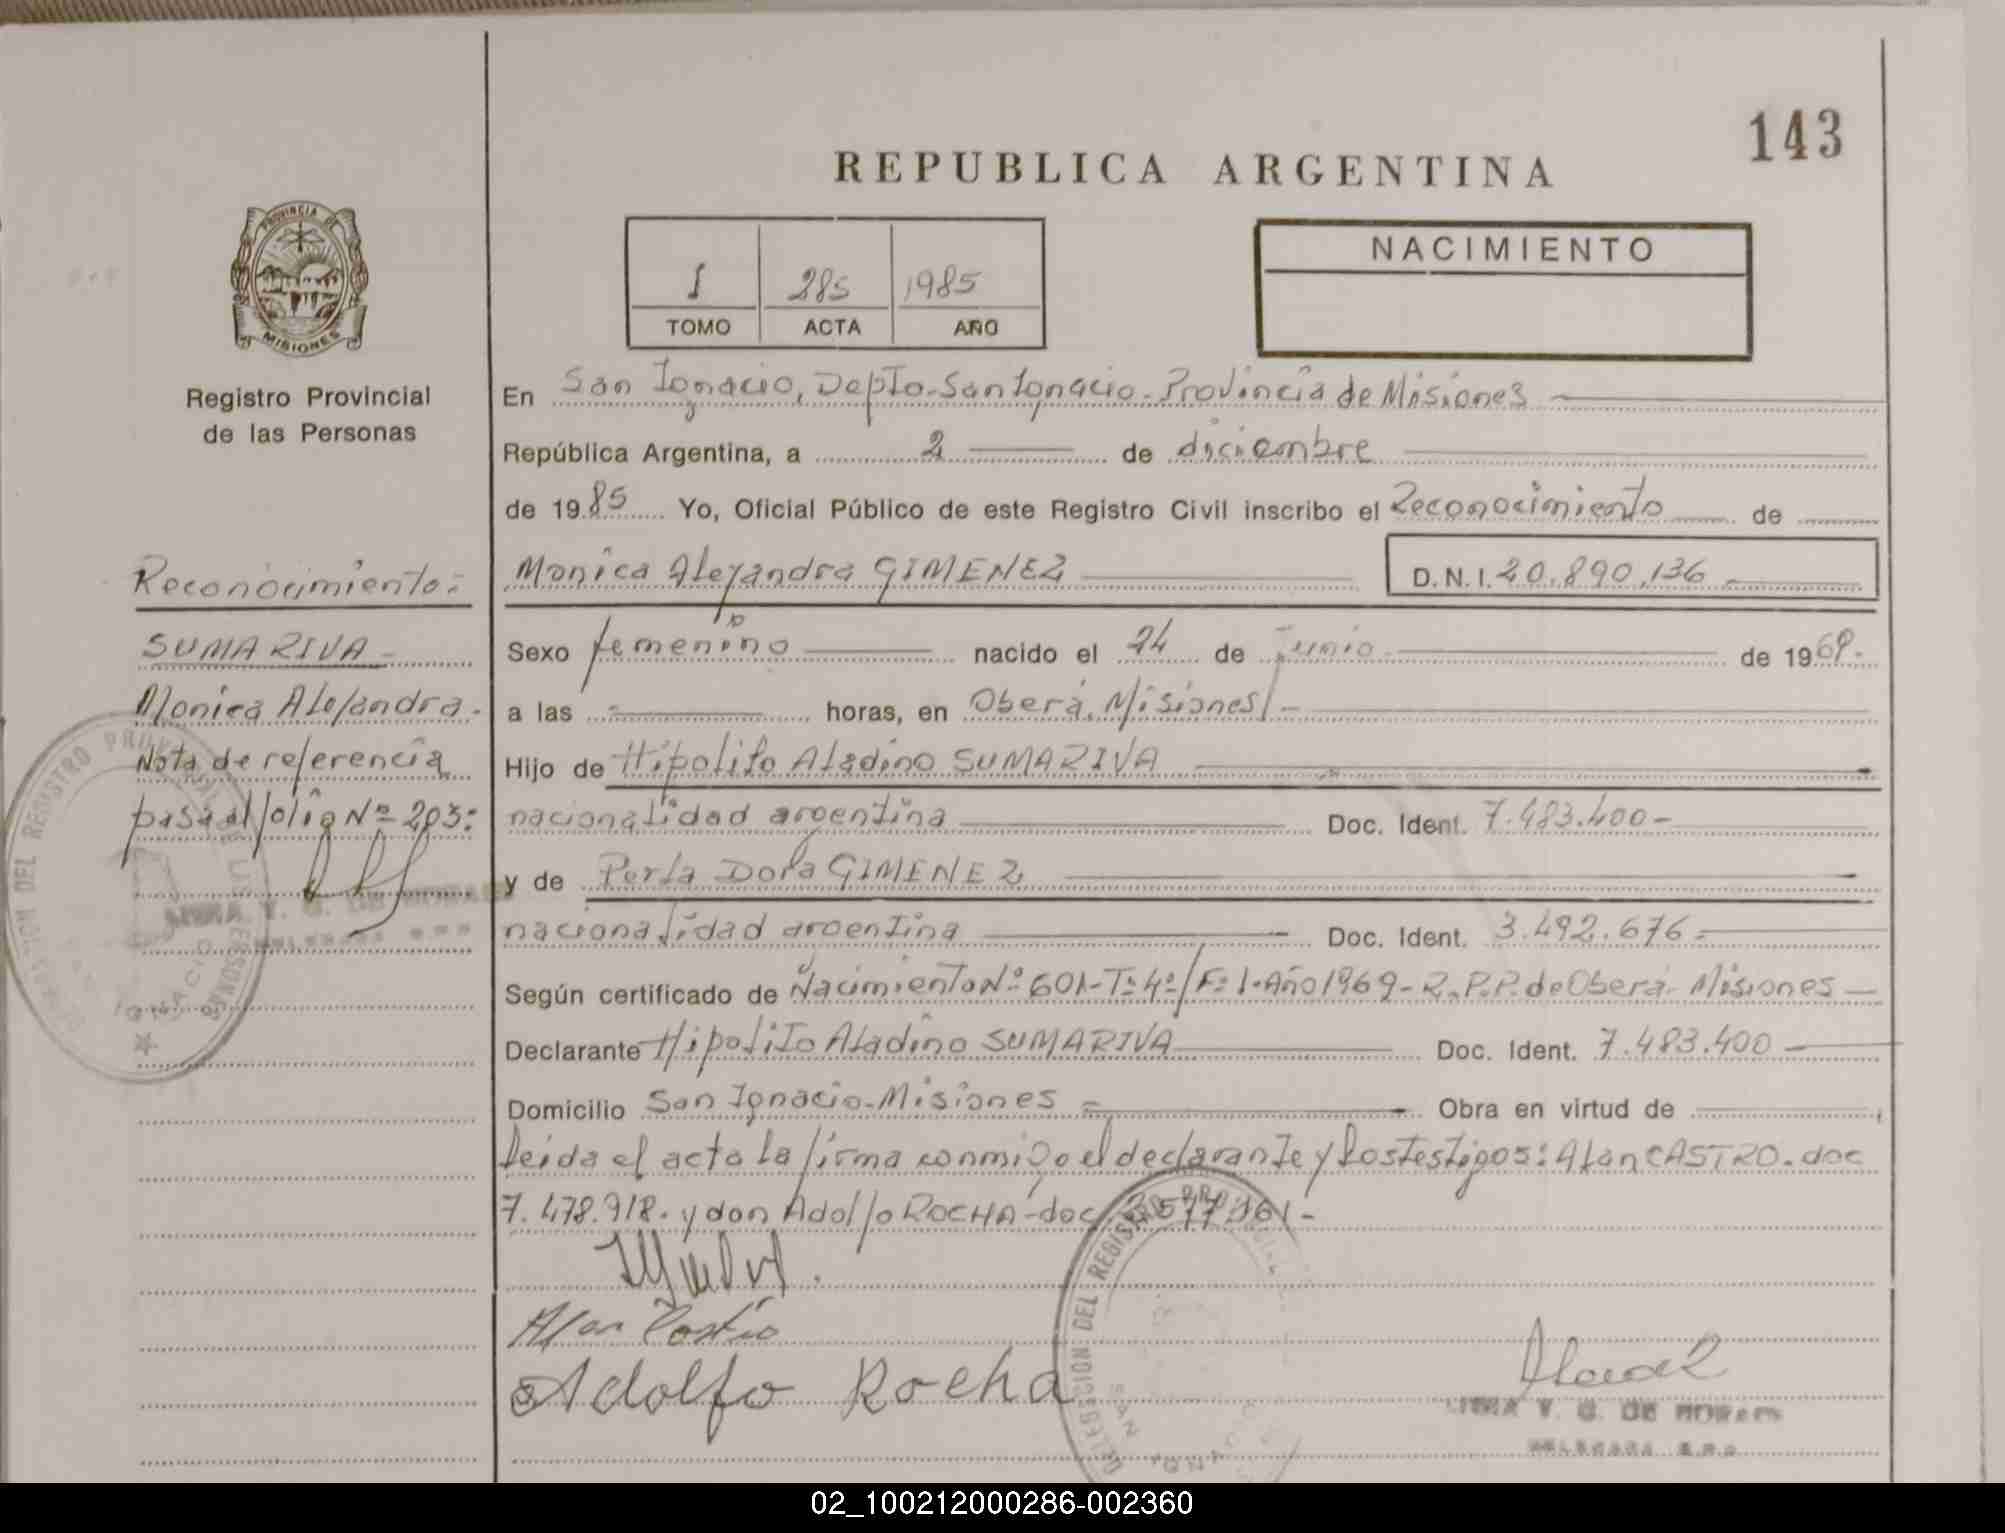 143
REPUBLICA ARGENTINA
PROVINCIA DE
MISIONES
Registro Provincial
de las Personas
I 285 1985
TOMO ACTA AÑO
NACIMIENTO
En San Ignacio, Depto-San Ignacio-Provincia de Misiones
República Argentina, a 2 de diciembre
de 1985 Yo, Oficial Público de este Registro Civil inscribo el Reconocimiento de
Monica Alejandra GIMENEZ D.N.I. 20.890.136
Sexo femenino nacido el 24 de Junio de 1969.
a las - horas, en Oberá, Misiones/-
Hijo de Hipolito Aladino SUMARIVA
nacionalidad argentina Doc. Ident. 7.483.400-
y de Perla Dora GIMENEZ
nacionalidad argentina Doc. Ident. 3.492.676-
Según certificado de Nacimiento Nº 601-Tº 4º/Fº 1-Año 1969-R.P.P. de Oberá-Misiones
Declarante Hipolito Aladino SUMARIVA Doc. Ident. 7.483.400
Domicilio San Ignacio-Misiones Obra en virtud de
leida el acta la firma conmigo el declarante y los testigos: Alan CASTRO-doc
7.478.918. y don Adolfo ROCHA-doc
Alan Castro
Adolfo Rocha
DELEGACION DEL REGISTRO PROVINCIAL
SAN IGNACIO
LIMA Y. G. DE MORAES
DELEGADA R.P.P.
Reconocimiento:
SUMARIVA-
Monica Alejandra.
Nota de referencia
pasa al folio Nº 203:
LIMA Y. G. DE MORAES
DELEGACION DEL REGISTRO PROVINCIAL DE LAS PERSONAS
SAN IGNACIO
02_100212000286-002360